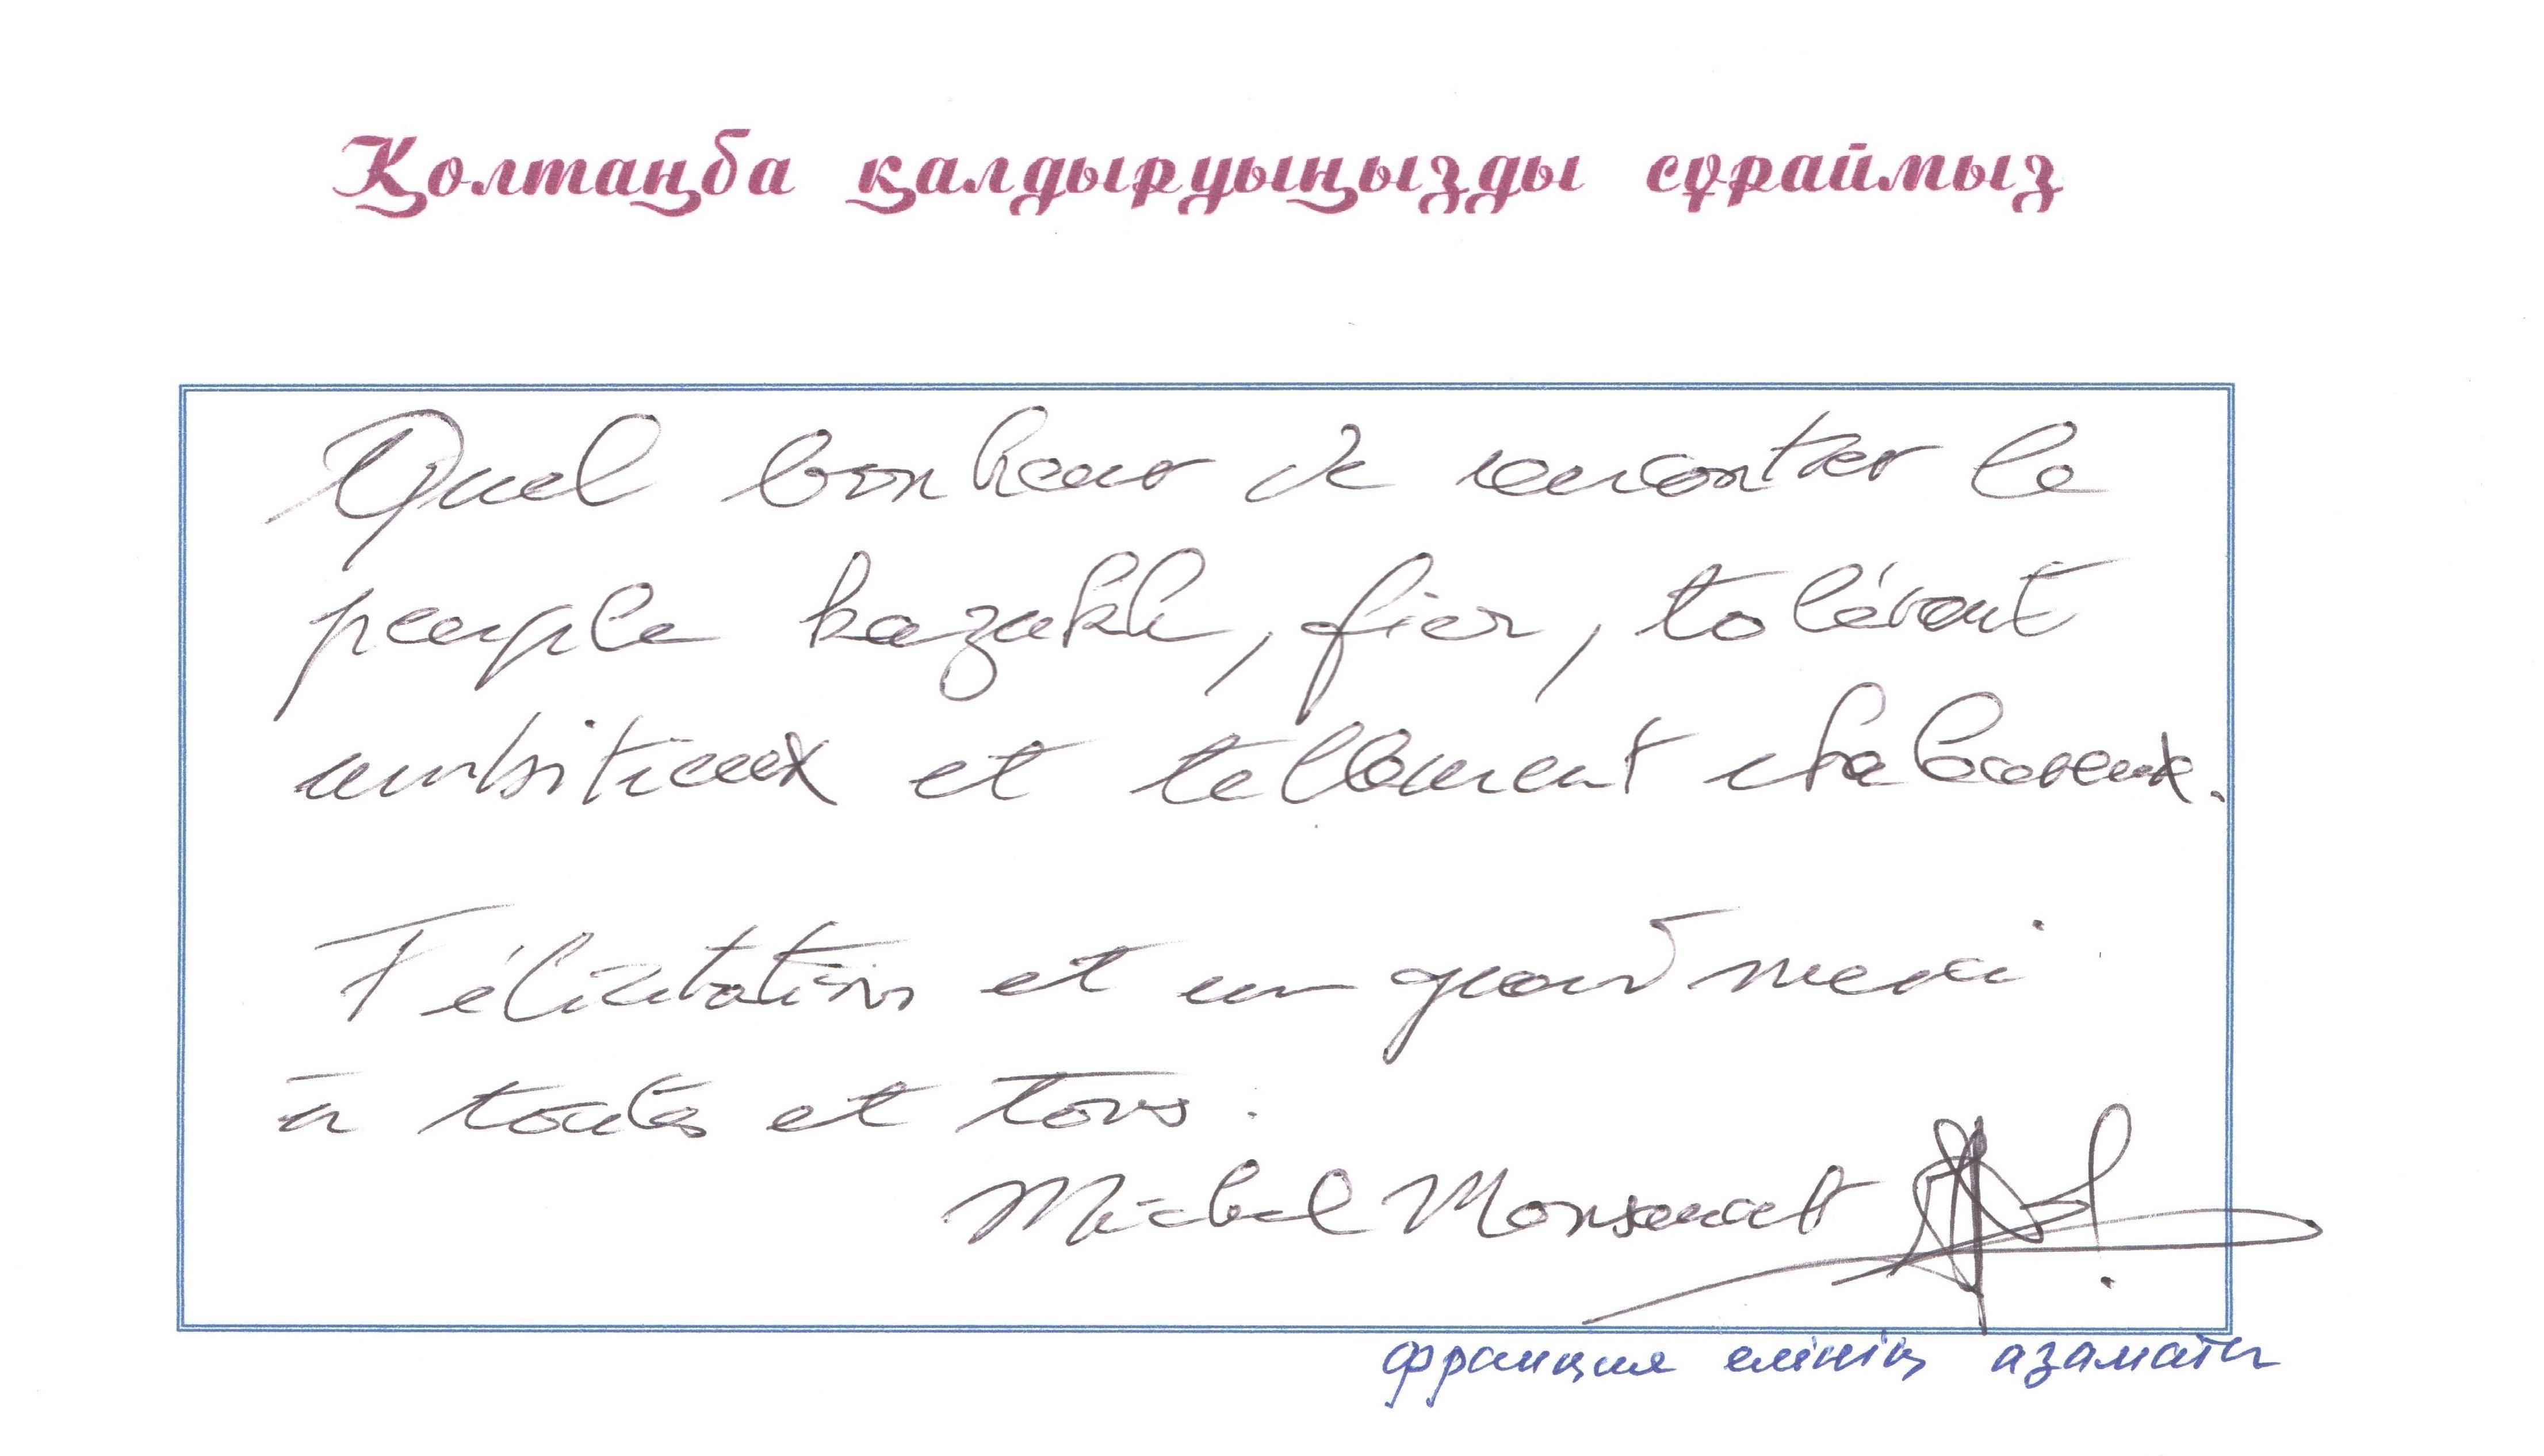 Қолтаңба қалдыруыңызды сұраймыз
Quel bonheur de rencontrer le
peuple kazakh, fier, tolérant
ambitieux et tellement chaleureux.
Félicitations et un grand merci
à toutes et tous.
Michel Monsauret
франция елінің азаматы